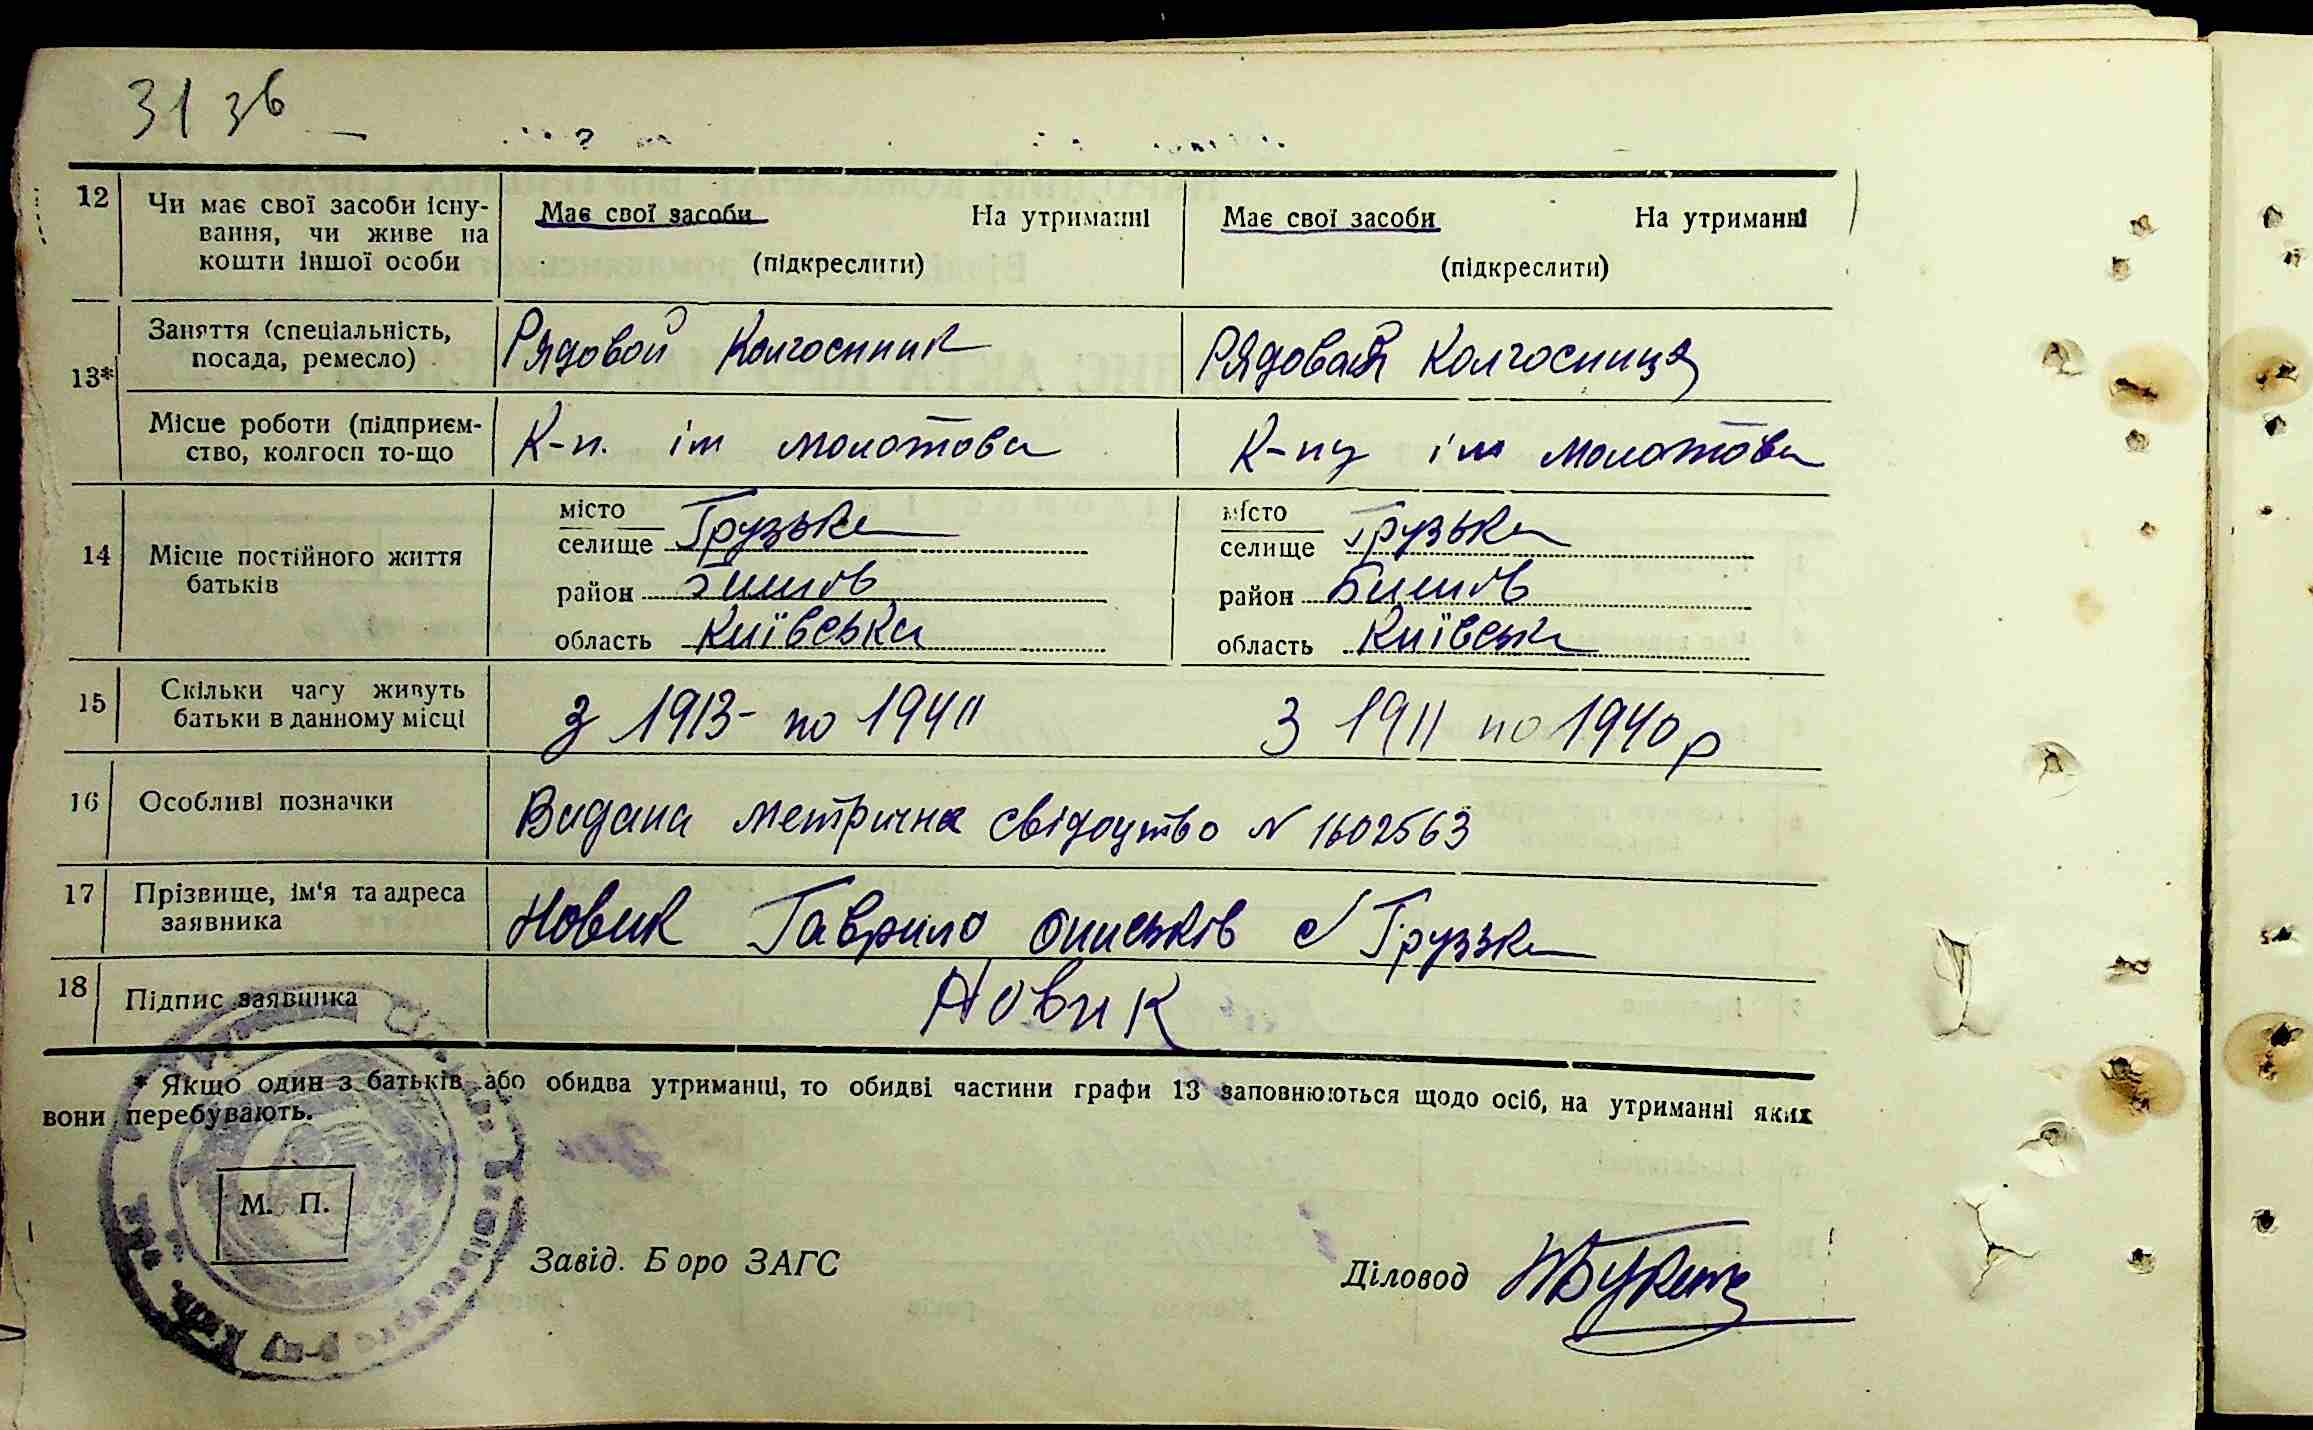 31 зв
12 Чи має свої засоби існу-
вання, чи живе на
кошти іншої особи
Має свої засоби На утриманні
(підкреслити)
Має свої засоби На утриманні
(підкреслити)
13*
Заняття (спеціальність,
посада, ремесло)
Рядовой Колгоспник
Рядовая Колгоспиця
Місце роботи (підприєм-
ство, колгосп то-що
К-п. ім Молотова
К-пу ім Молотова
14 Місце постійного життя
батьків
місто
селище Грузька
район Бишів
область Київська
місто
селище Грузька
район Бишів
область Київська
15 Скільки часу живуть
батьки в данному місці
З 1913 - по 194
З 1911 по 1940 р
16 Особливі позначки
Видана метрична свідоцтво N 1602563
17 Прізвище, ім'я та адреса
заявника
Новик Гаврило с Грузька
18 Підпис заявника
Новик
* Якщо один з батьків або обидва утриманці, то обидві частини графи 13 заповнюються щодо осіб, на утриманні яких
вони перебувають.
М. П.
Завід. Бюро ЗАГС
Діловод